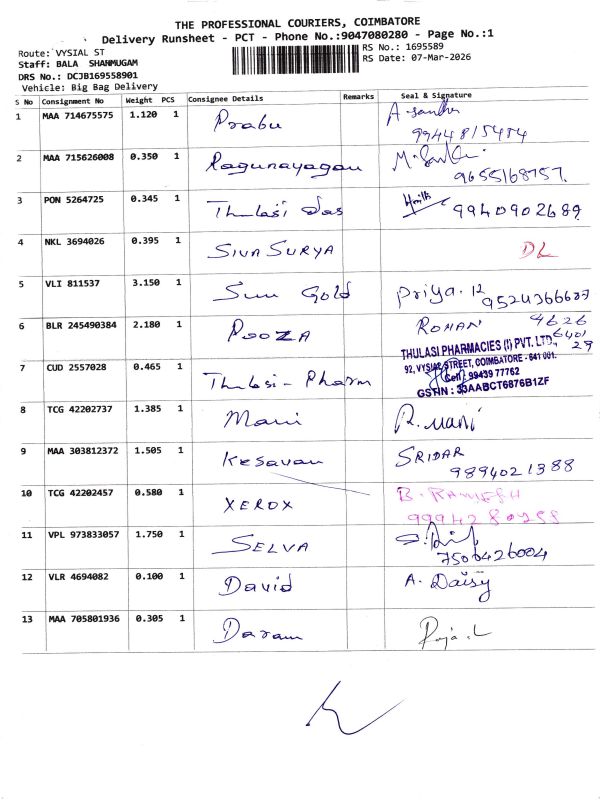 THE PROFESSIONAL COURIERS, COIMBATORE
Delivery Runsheet - PCT - Phone No.:9047080280 - Page No.:1
Route: VYSIAL ST
RS No.: 1695589
Staff: BALA SHANMUGAM
RS Date: 07-Mar-2026
DRS No.: DCJB169558901
Vehicle: Big Bag Delivery
S No Consignment No Weight PCS Consignee Details Remarks Seal & Signature
1 MAA 714675575 1.120 1 Prabu A. Santhi
9944815484
2 MAA 715626008 0.350 1 Ragunayagan
9655168757.
3 PON 5264725 0.345 1 Thulasi das 9940902689
4 NKL 3694026 0.395 1 SIVA SURYA DL
5 VLI 811537 3.150 1 Sun Gold Priya. 12
9524366687
6 BLR 245490384 2.180 1 POOZA ROHAN 4626
6401
29
THULASI PHARMACIES (I) PVT. LTD.
92, VYSIAL STREET, COIMBATORE - 641 001.
Cell : 99439 77762
GSTIN : 33AABCT6876B1ZF
7 CUD 2557028 0.465 1 Thulasi - Pharm
8 TCG 42202737 1.385 1 Mani R. Mani
9 MAA 303812372 1.505 1 Kesavan SRIDAR
9894021388
10 TCG 42202457 0.580 1 XEROX B. RAMESH
9994280258
11 VPL 973833057 1.750 1 SELVA
7506426004
12 VLR 4694082 0.100 1 David A. Daisy
13 MAA 705801936 0.305 1 Daram